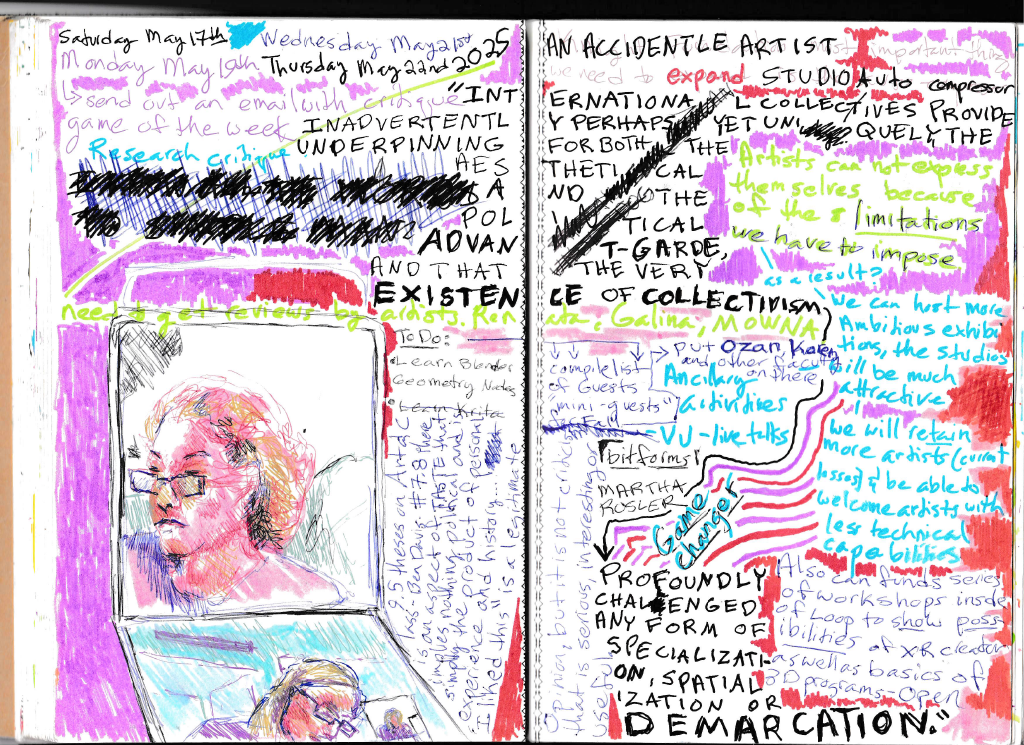 Saturday May 17th
Wednesday May 21st
Monday May 19th
Thursday May 22nd 2025
↳ send out an email with critique
game of the week
Research critique
"INT
INADVERTENTL
UNDERPINNING
AES
A
POL
ADVAN
AND THAT
EXISTEN
need to get reviews by artists. Ren
To Do:
Learn Blender
Geometry Nodes
Learn Krita
95 theses on Art & C
lass - Ben Davis #7.8 here
is an aspect of TASTE that
implies nothing political and is
simply the product of personal
experience and history...
"I liked this" is a legitimate
AN ACCIDENTLE ARTIST
most important thing
we need to expand STUDIO Auto compressor
ERNATIONAL COLLECTIVES PROVIDE
Y PERHAPS YET UNIQUELY THE
FOR BOTH THE
THETICAL
ND THE
TICAL
T-GARDE,
THE VERY
CE OF COLLECTIVISM
Artists can not express
themselves because
of the limitations
we have to impose
as a result?
we can host more
Ambitious exhibi
tions, the studios
will be much
attractive
we will retain
more artists (current
losses) & be able to
welcome artists with
less technical
capabilities
ata, Galina, MOWNA
compile list
of Guests
"mini-guests"
→ put Ozan
and other faculty
on there
Ancillary
activities
- VJ - live talks
bitforms
MARTHA
ROSLER
Game
changer
opinion, but it is not criticism
that is serious, interesting or
PROFOUNDLY
CHALLENGED
ANY FORM OF
SPECIALIZATI-
ON, SPATIAL
IZATION OR
DEMARCATION."
Also can fund a series
of workshops inside
of Loop to show poss
ibilities of XR creation
as well as basics of
3D programs - Open